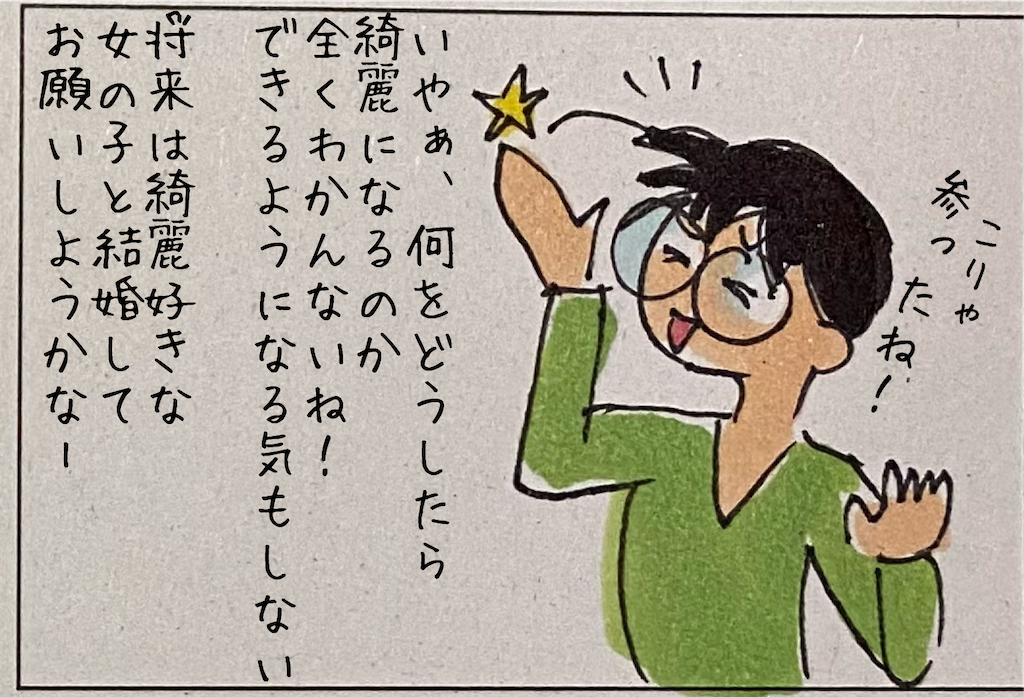 こりゃ
参ったね!
いやぁ、何をどうしたら
綺麗になるのか
全くわかんないね!
できるようになる気もしない
将来は綺麗好きな
女の子と結婚して
お願いしようかなー